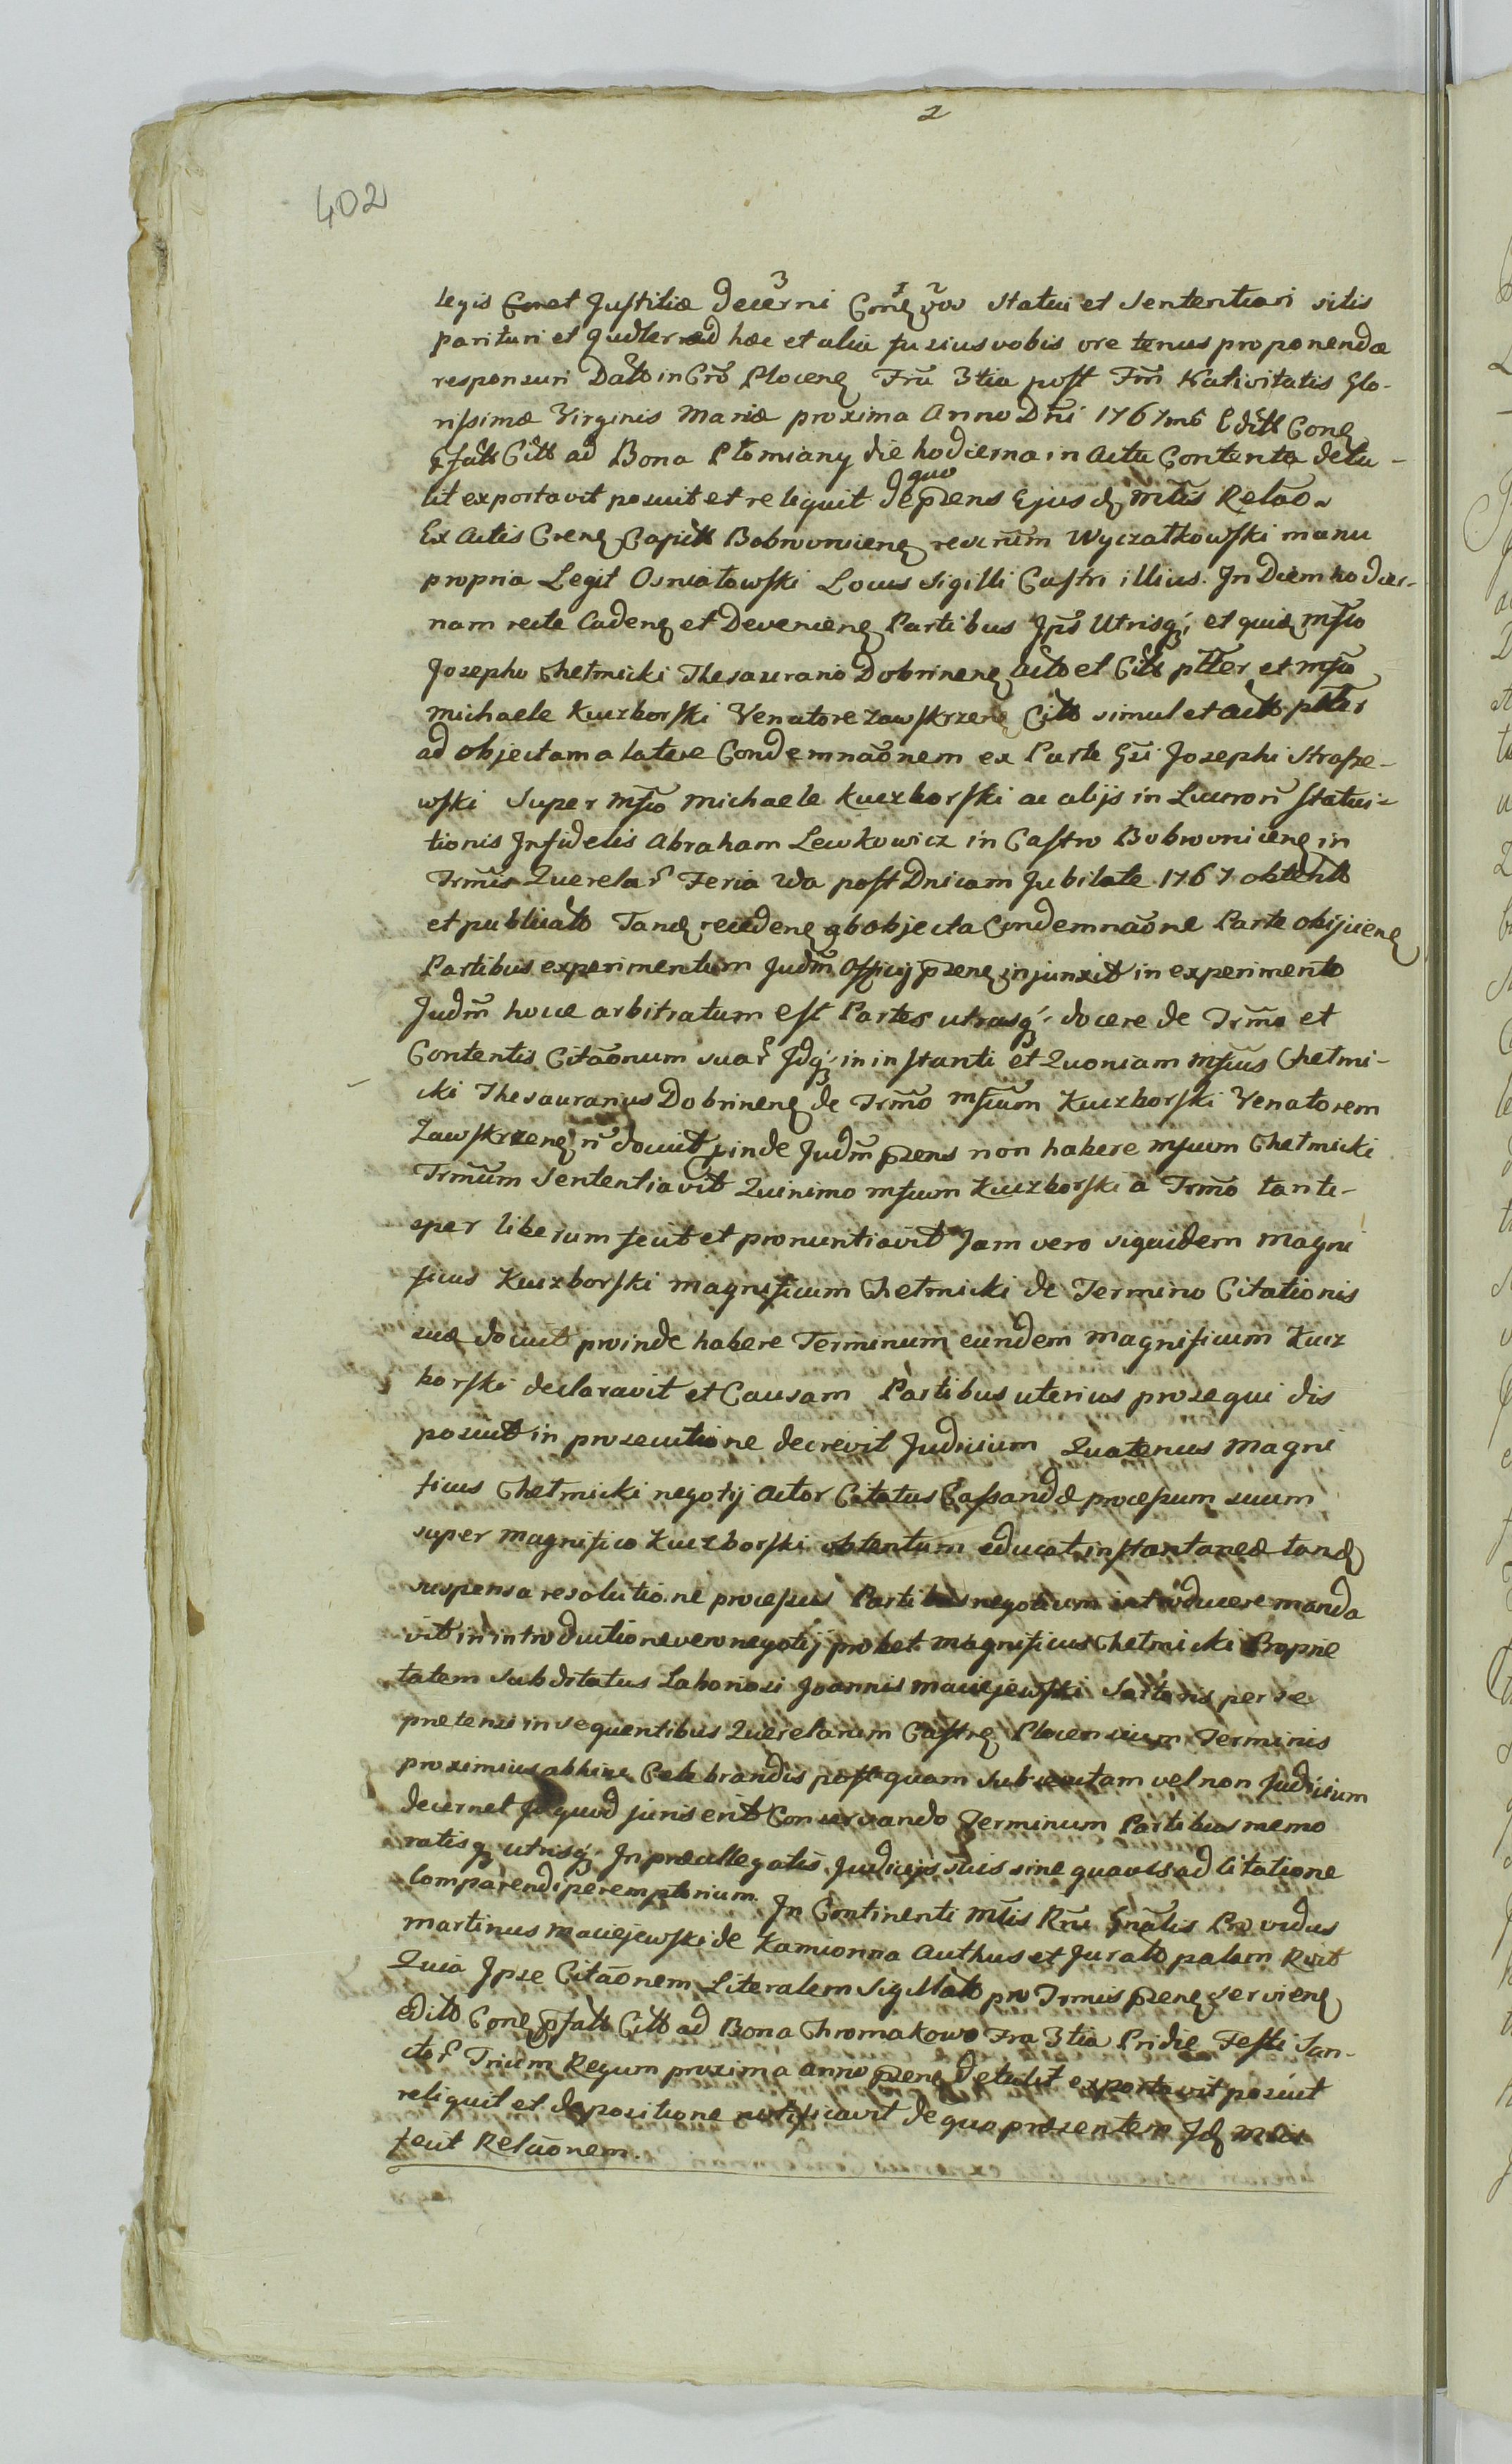 2
402
legis et Justitiæ decerni vos statui et sententiari sitis
parituri et ad hæc et alia fusius vobis ore tenus proponenda
responsuri Datt in Crō Plocenę Fra 3tia post Nativitatis Glo-
rissimæ Virginis Mariæ proxima Anno Dni 1767mo
Citt ad Bona Płomiany die hodierna in Actu Contenta detu-
lit exportavit posuit et reliquit de quo pzens Ejusdę mtis Relāo
Ex Actis Crenę Capitt Bobrownicenę Wyczałkowski manu
propria Legit Osniałowski Locus Sigilli Castri illius. In Diem hodier-
nam recte Cadenę et Devenienę Partibus Jpis Utrisqȝ et quidę mfco
Josepho Chełmicki Thesaurario Dobrinenę Actō et Citō ptter et mfco
Michaele Kuczborski Venatore Zawskrzenę Citto simul et Actto ptter
ad objectam a latere Condemnāonem ex Parte Gsi Josephi Strasze-
wski Super mfco Michaele Kuczborski ac alijs in statui-
tionis Infidelis Abraham Lewkowicz in Castro Bobrownicenę in
Trmis Querelar Feria 2da post Dnicam Jubilate 1767 obtentō
et publicatō Tandę recedenę ab objecta Condemnāone Parte objicienę
Partibus experimentum Judm Officij pzenę injunxit in experimento
Judm hocce arbitratum est Partes utrasqȝ docere de Trmo et
Contentis Citāonum suar Jdqȝ in instanti et Quoniam mfcus Chełmi-
cki Thesaurarius Dobrinenę de Trmo mfcum Kuczborski Venatorem
Zawskrzenę n docuit pinde Judm pzens non habere mfcum Chełmicki
Trmum Sententiavit Quinimo mfcum Kuczborski a Trmo tanti-
sper liberum fecit et pronuntiavit Jam vero siquidem Magni
ficus Kuczborski magnificum Chełmicki de Termino Citationis
suæ docuit proinde habere Terminum eundem Magnificum Kucz
borski declaravit et Causam Partibus uterius prosequi dis
posuit in prosecutione decrevit Judicium Quatenus Magni
ficus Chełmicki negotij Actor Citatus Cassandæ processum suum
super Magnifico Kuczborski obtentum educat instantanee tandę
suspensa resolutione processus Partibus negotium introducere manda
vit in introductione vero negotij probet Magnificus Chełmicki Proprie
tatem Subditatus Laboriosi Joannis Maciejewski Sartoris per se
pretensi in sequentibus Querelarum Castrę Plocensium Terminis
proximius abhinc Celebrandis post quam vel non Judicium
decernet Id quod juris erit Conservando Terminum Partibus memo
ratisqȝ utrisqȝ In præallegatis Judicijs suis sine quavis ad citatione
Comparendi peremptorium.
In Continenti Mtis Rni Gnalis Providus
Martinus Maciejewski de Kamionna Authus et Juratō palam Rcit
Quia Ipse Citāonem Literalem Sigillatō pro Trmis pzenę servienę
editō pfatt Citt ad Bona Chromakowo Fra 3tia Pridie Festi San-
ctor Trium Regum proxima anno pzenę Detulit exportavit posuit
reliquit et depositione notificavit de quo præsentem Idę
fecit Relāonem.